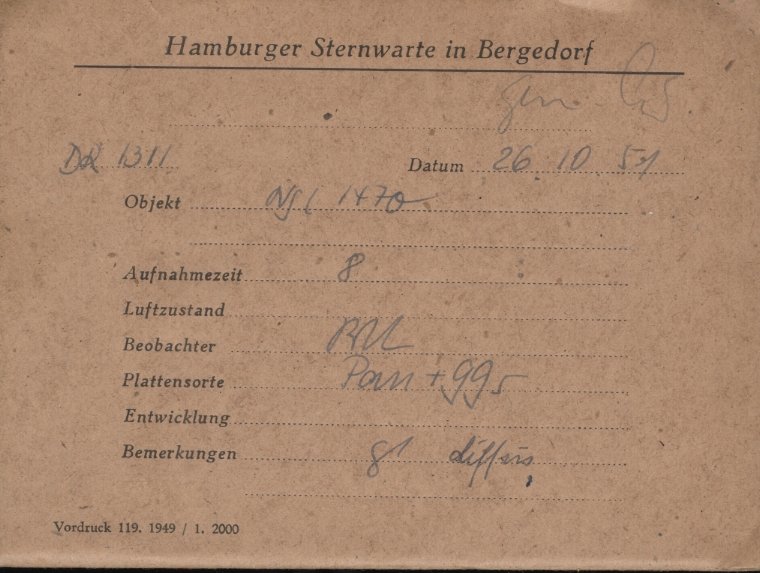 Hamburger Sternwarte in Bergedorf
1311
Datum 26 10 51
Objekt NGC 1470
Aufnahmezeit 8
Luftzustand
Beobachter
Plattensorte Pan + 995
Entwicklung
Bemerkungen diffus
Vordruck 119. 1949 / 1. 2000